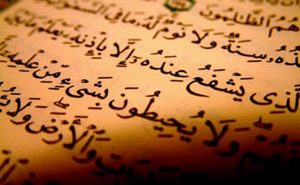 هُمُ الظَّٰلِمُونَ
ـذُهُۥ سِنَةٌ وَلَا نَوْمٌ لَّهُۥ مَا فِى السَّمَٰ
لَّذِى يَشْفَعُ عِندَهُۥٓ إِلَّا بِإِذْنِهِۦ يَعْلَمُ
ـهُمْ وَلَا يُحِيطُونَ بِشَىْءٍ مِّنْ عِلْمِهِۦٓ
وَٰتِ وَالْأَرْضَ وَلَا